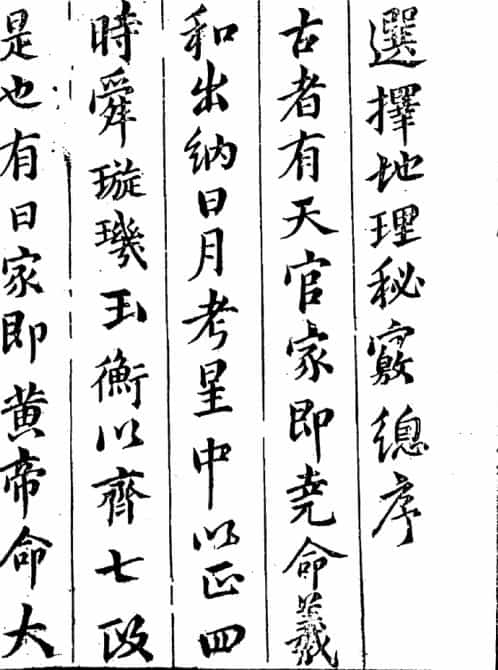 選擇地理秘竅總序
古者有天官家即堯命羲
和出納日月考星中以正四
時舜璇璣玉衡以齊七政
是也有日家即黄帝命大